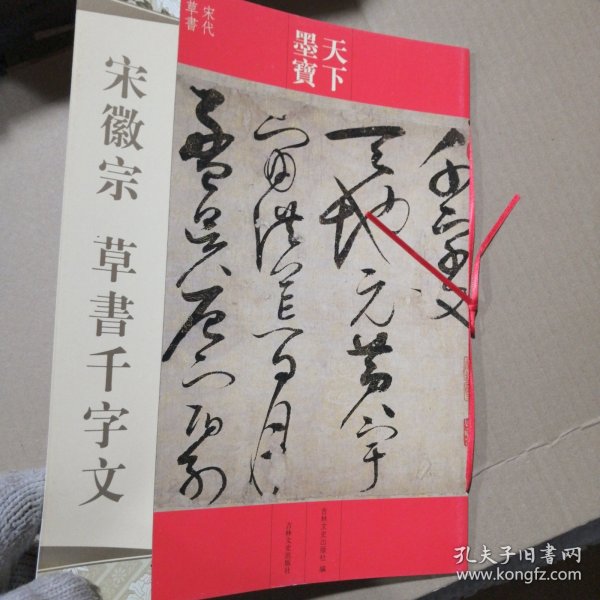 宋代
草書
天下
墨寶
宋徽宗 草書千字文
千字文
天地元黄宇
宙洪荒日月
盈昃辰宿列
吉林文史出版社 編
吉林文史出版社
孔夫子旧书网
www.kongfz.com